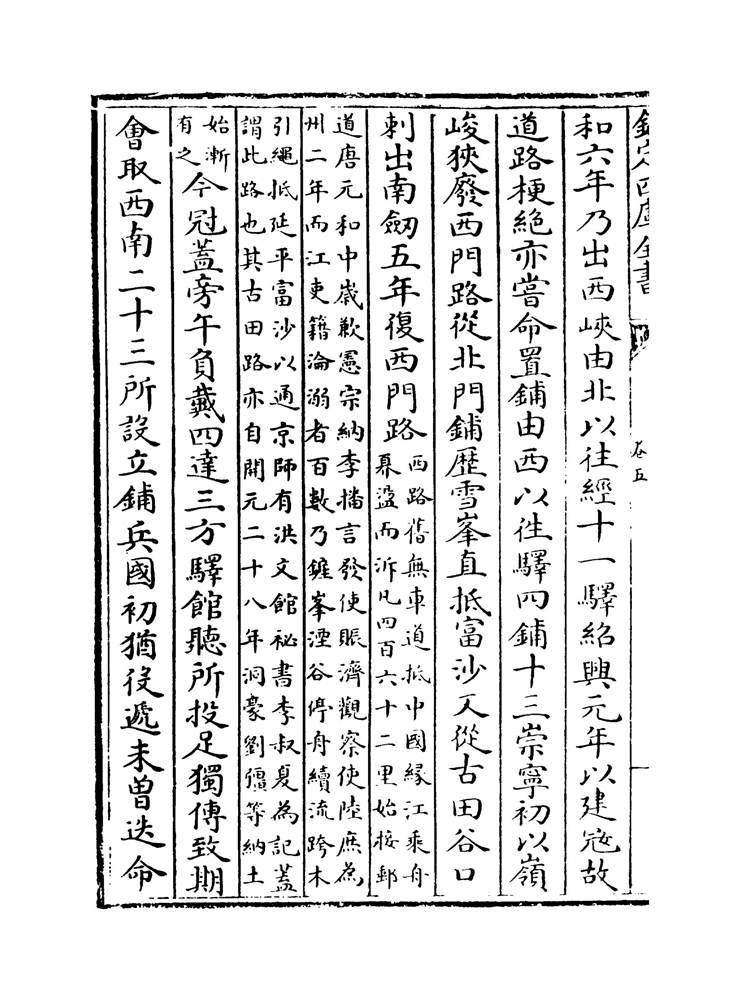 欽定四庫全書
卷五
和六年乃出西峽由北以往經十一驛紹興元年以建寇故
道路梗絶亦嘗命置鋪由西以徃驛四鋪十三崇寧初以嶺
峻狹廢西門路從北門鋪歴雪峯直抵富沙又從古田谷口
刺出南劒五年復西門路西路舊無車道抵中國緣江乘舟
㬥盪而泝凡四百六十二里始接郵
道唐元和中嵗歉憲宗納李播言發使賑濟觀察使陸庶為
州二年而江吏籍淪溺者百數乃鏟峯湮谷停舟續流跨木
引繩抵延平富沙以通京師有洪文館祕書李叔夏為記蓋
謂此路也其古田路亦自開元二十八年洞豪劉彊等納土
始漸
有之今冠蓋旁午負戴四達三方驛館聽所投足獨傳致期
會取西南二十三所設立鋪兵國初猶役遞未曽迭命